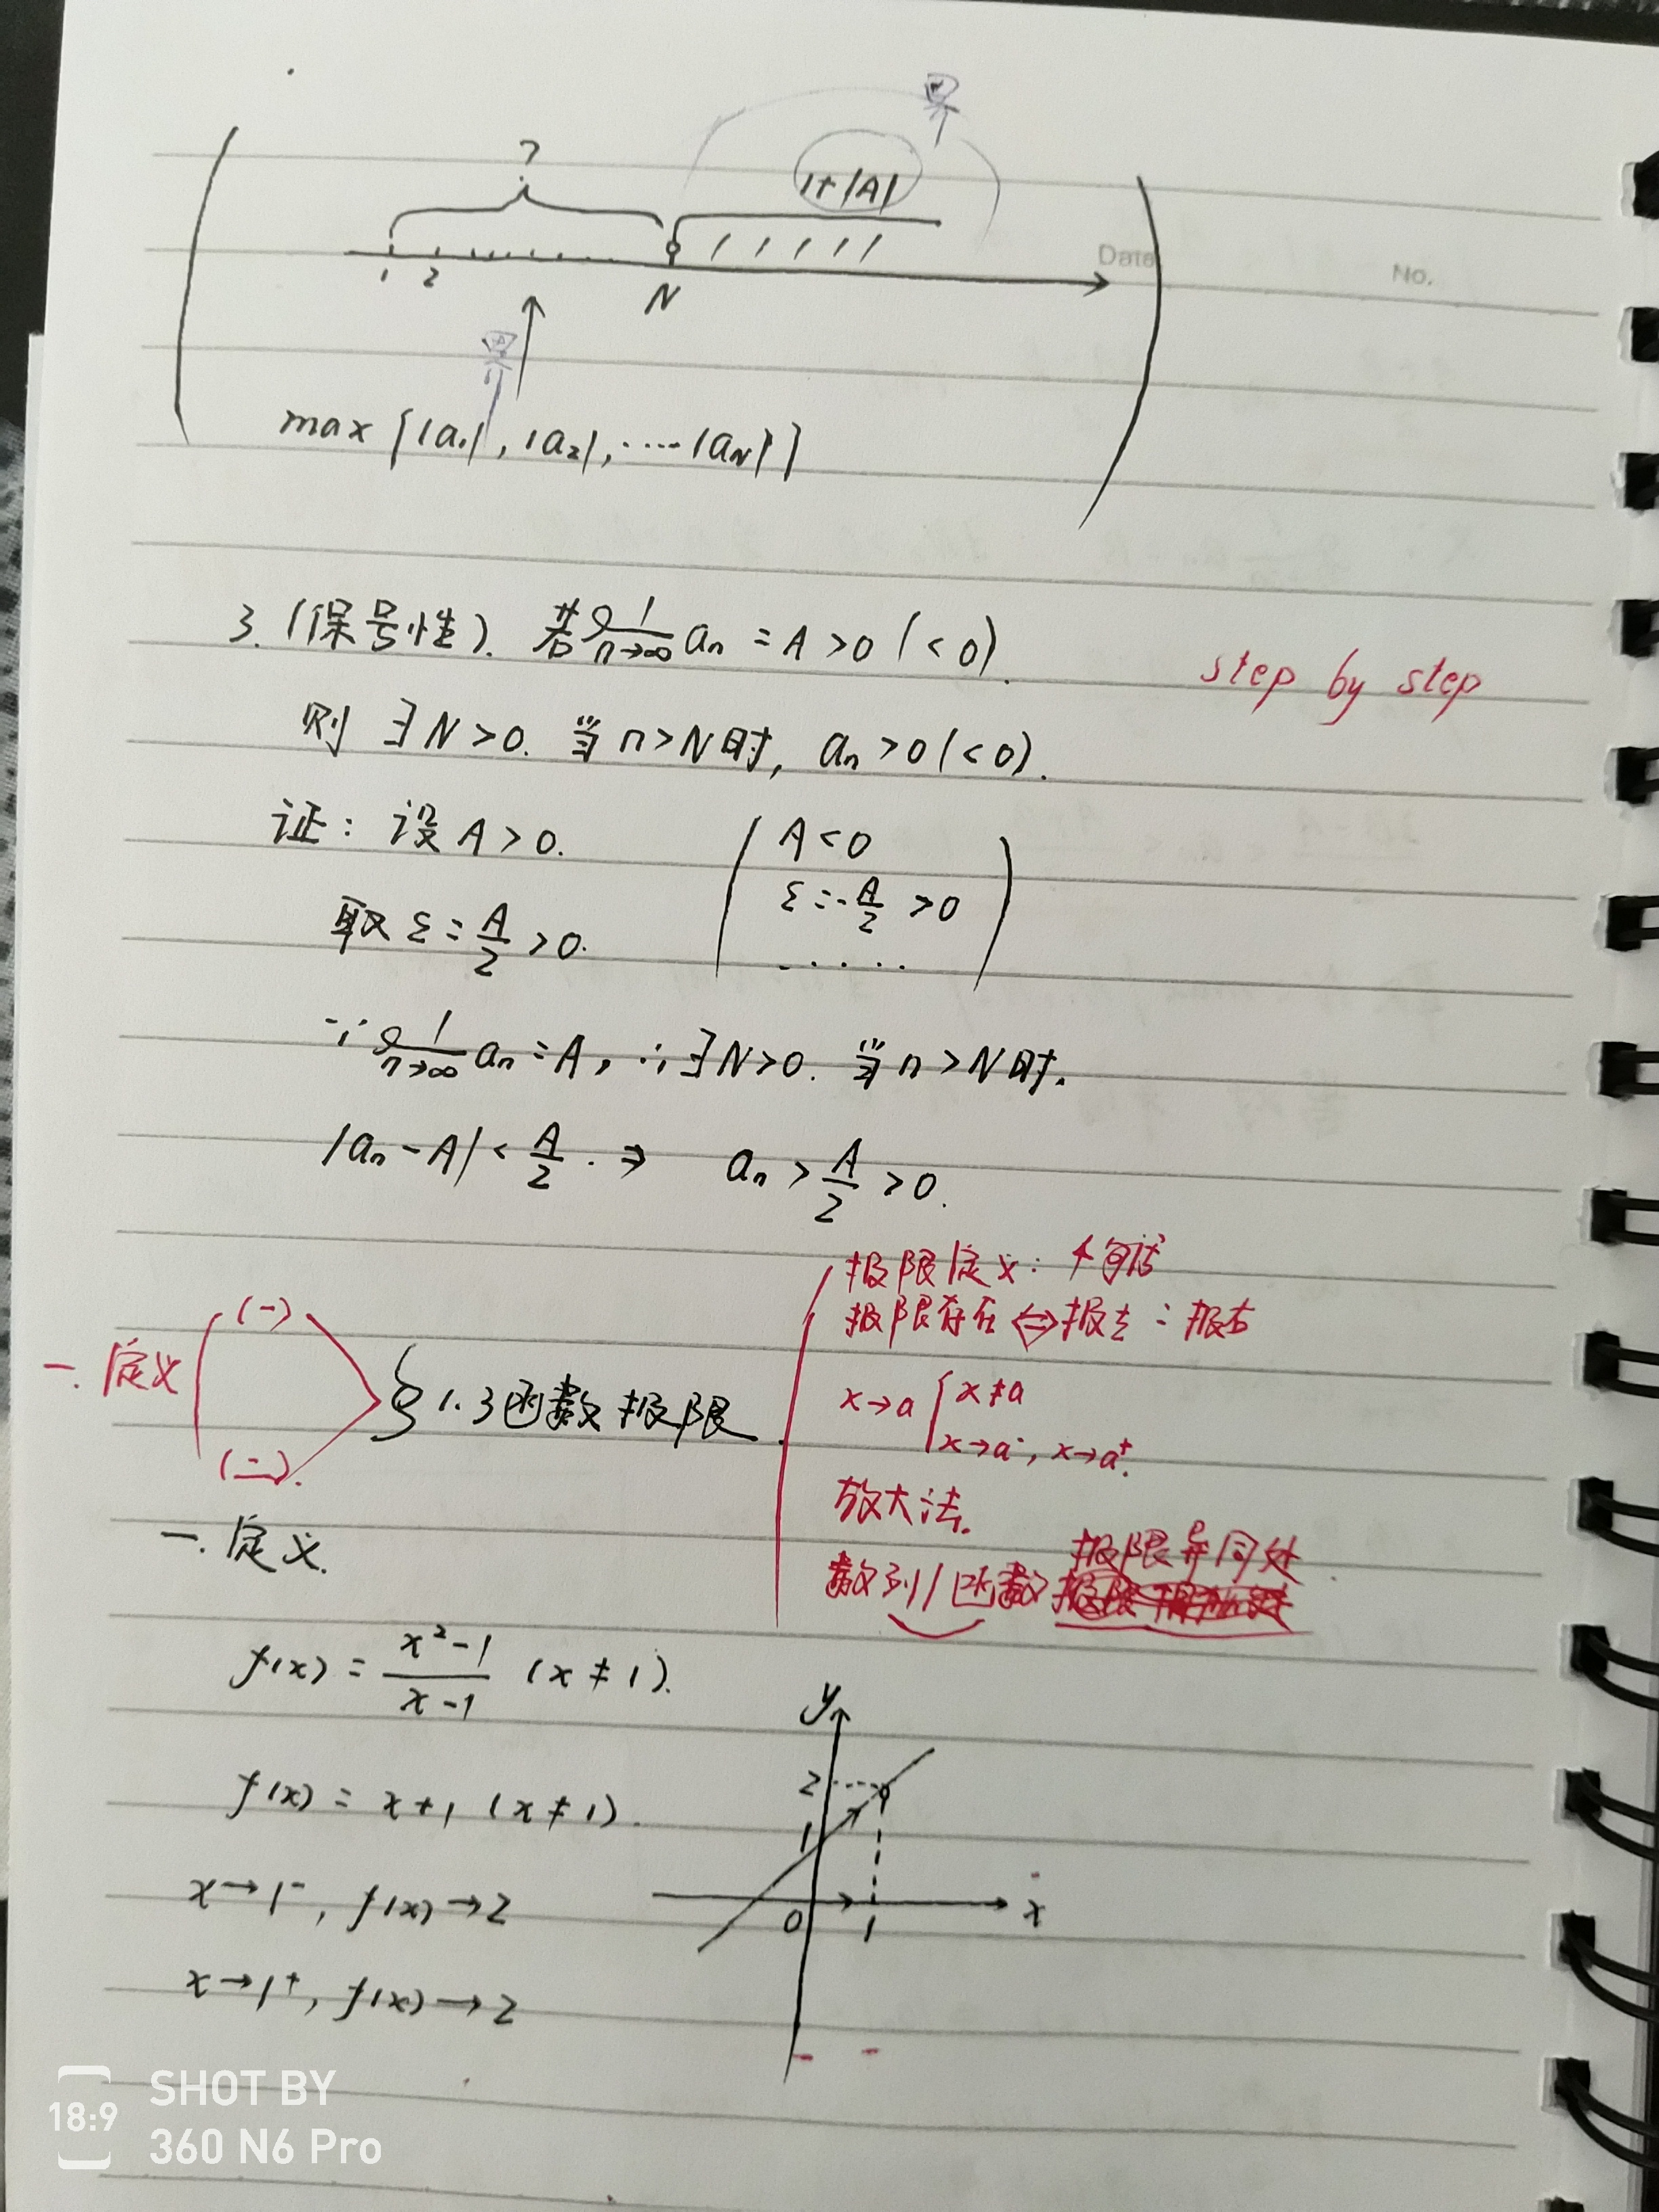 ?
界
1+|A|
Date
No.
1 2 N
界
max{|a₁|, |a₂|, ····|a_N|}
3. (保号性). 若 lim_{n→∞} aₙ = A > 0 (< 0).
step by step
则 ∃ N > 0. 当 n > N 时, aₙ > 0 (< 0).
证: 设 A > 0.
取 ε = A/2 > 0.
A < 0
ε = -A/2 > 0
······
∵ lim_{n→∞} aₙ = A, ∴ ∃ N > 0. 当 n > N 时.
|aₙ - A| < A/2. ⇒ aₙ > A/2 > 0.
一. 定义
(一)
(二).
§1.3 函数极限.
极限定义: 句话
极限存在 ⇔ 极左 = 极右
x→a { x≠a
x→a⁻, x→a⁺.
放大法.
数列/函数 极限异同处
一. 定义.
f(x) = (x²-1)/(x-1) (x≠1).
f(x) = x+1 (x≠1).
x→1⁻, f(x)→2
x→1⁺, f(x)→2
y
2
1
0 1 x
18:9
SHOT BY
360 N6 Pro